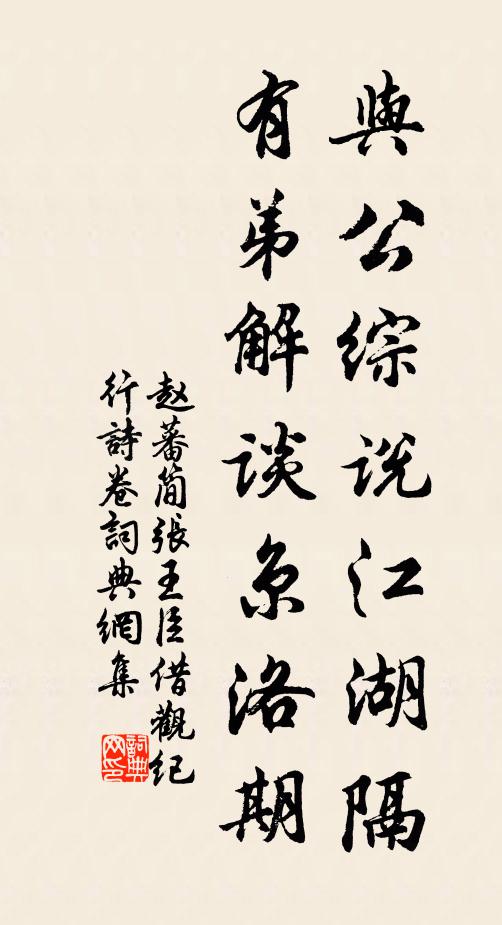 與公綜説江湖隔
有弟解談京洛期
赵蕃简張王臣借觀纪
行詩卷詞典網集
詞典網印